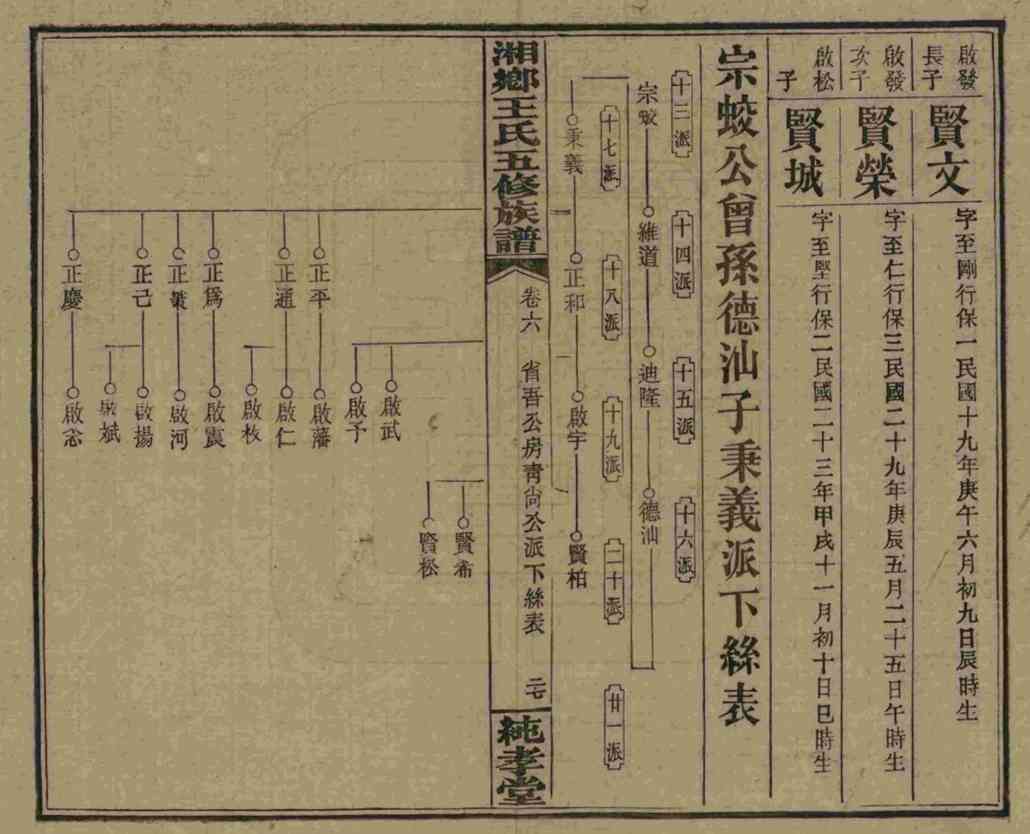 啟發長子
賢文
字至剛行保一民國十九年庚午六月初九日辰時生
啟發次子
賢榮
字至仁行保三民國二十九年庚辰五月二十五日午時生
啟松子
賢城
字至堅行保二民國二十三年甲戌十一月初十日巳時生
宗蛟公曾孫德汕子秉義派下絲表
十三派
十四派
十五派
十六派
宗蛟
維道
迪隆
德汕
十七派
十八派
十九派
二十派
廿一派
秉義
正和
啟宇
賢柏
湘鄉王氏五修族譜
卷六
省吾公房青尚公派下絲表
二七
純孝堂
賢希
賢松
啟武
啟予
正平
啟藩
正通
啟仁
啟枚
正為
啟震
正業
啟河
正己
啟揚
啟斌
正慶
啟念